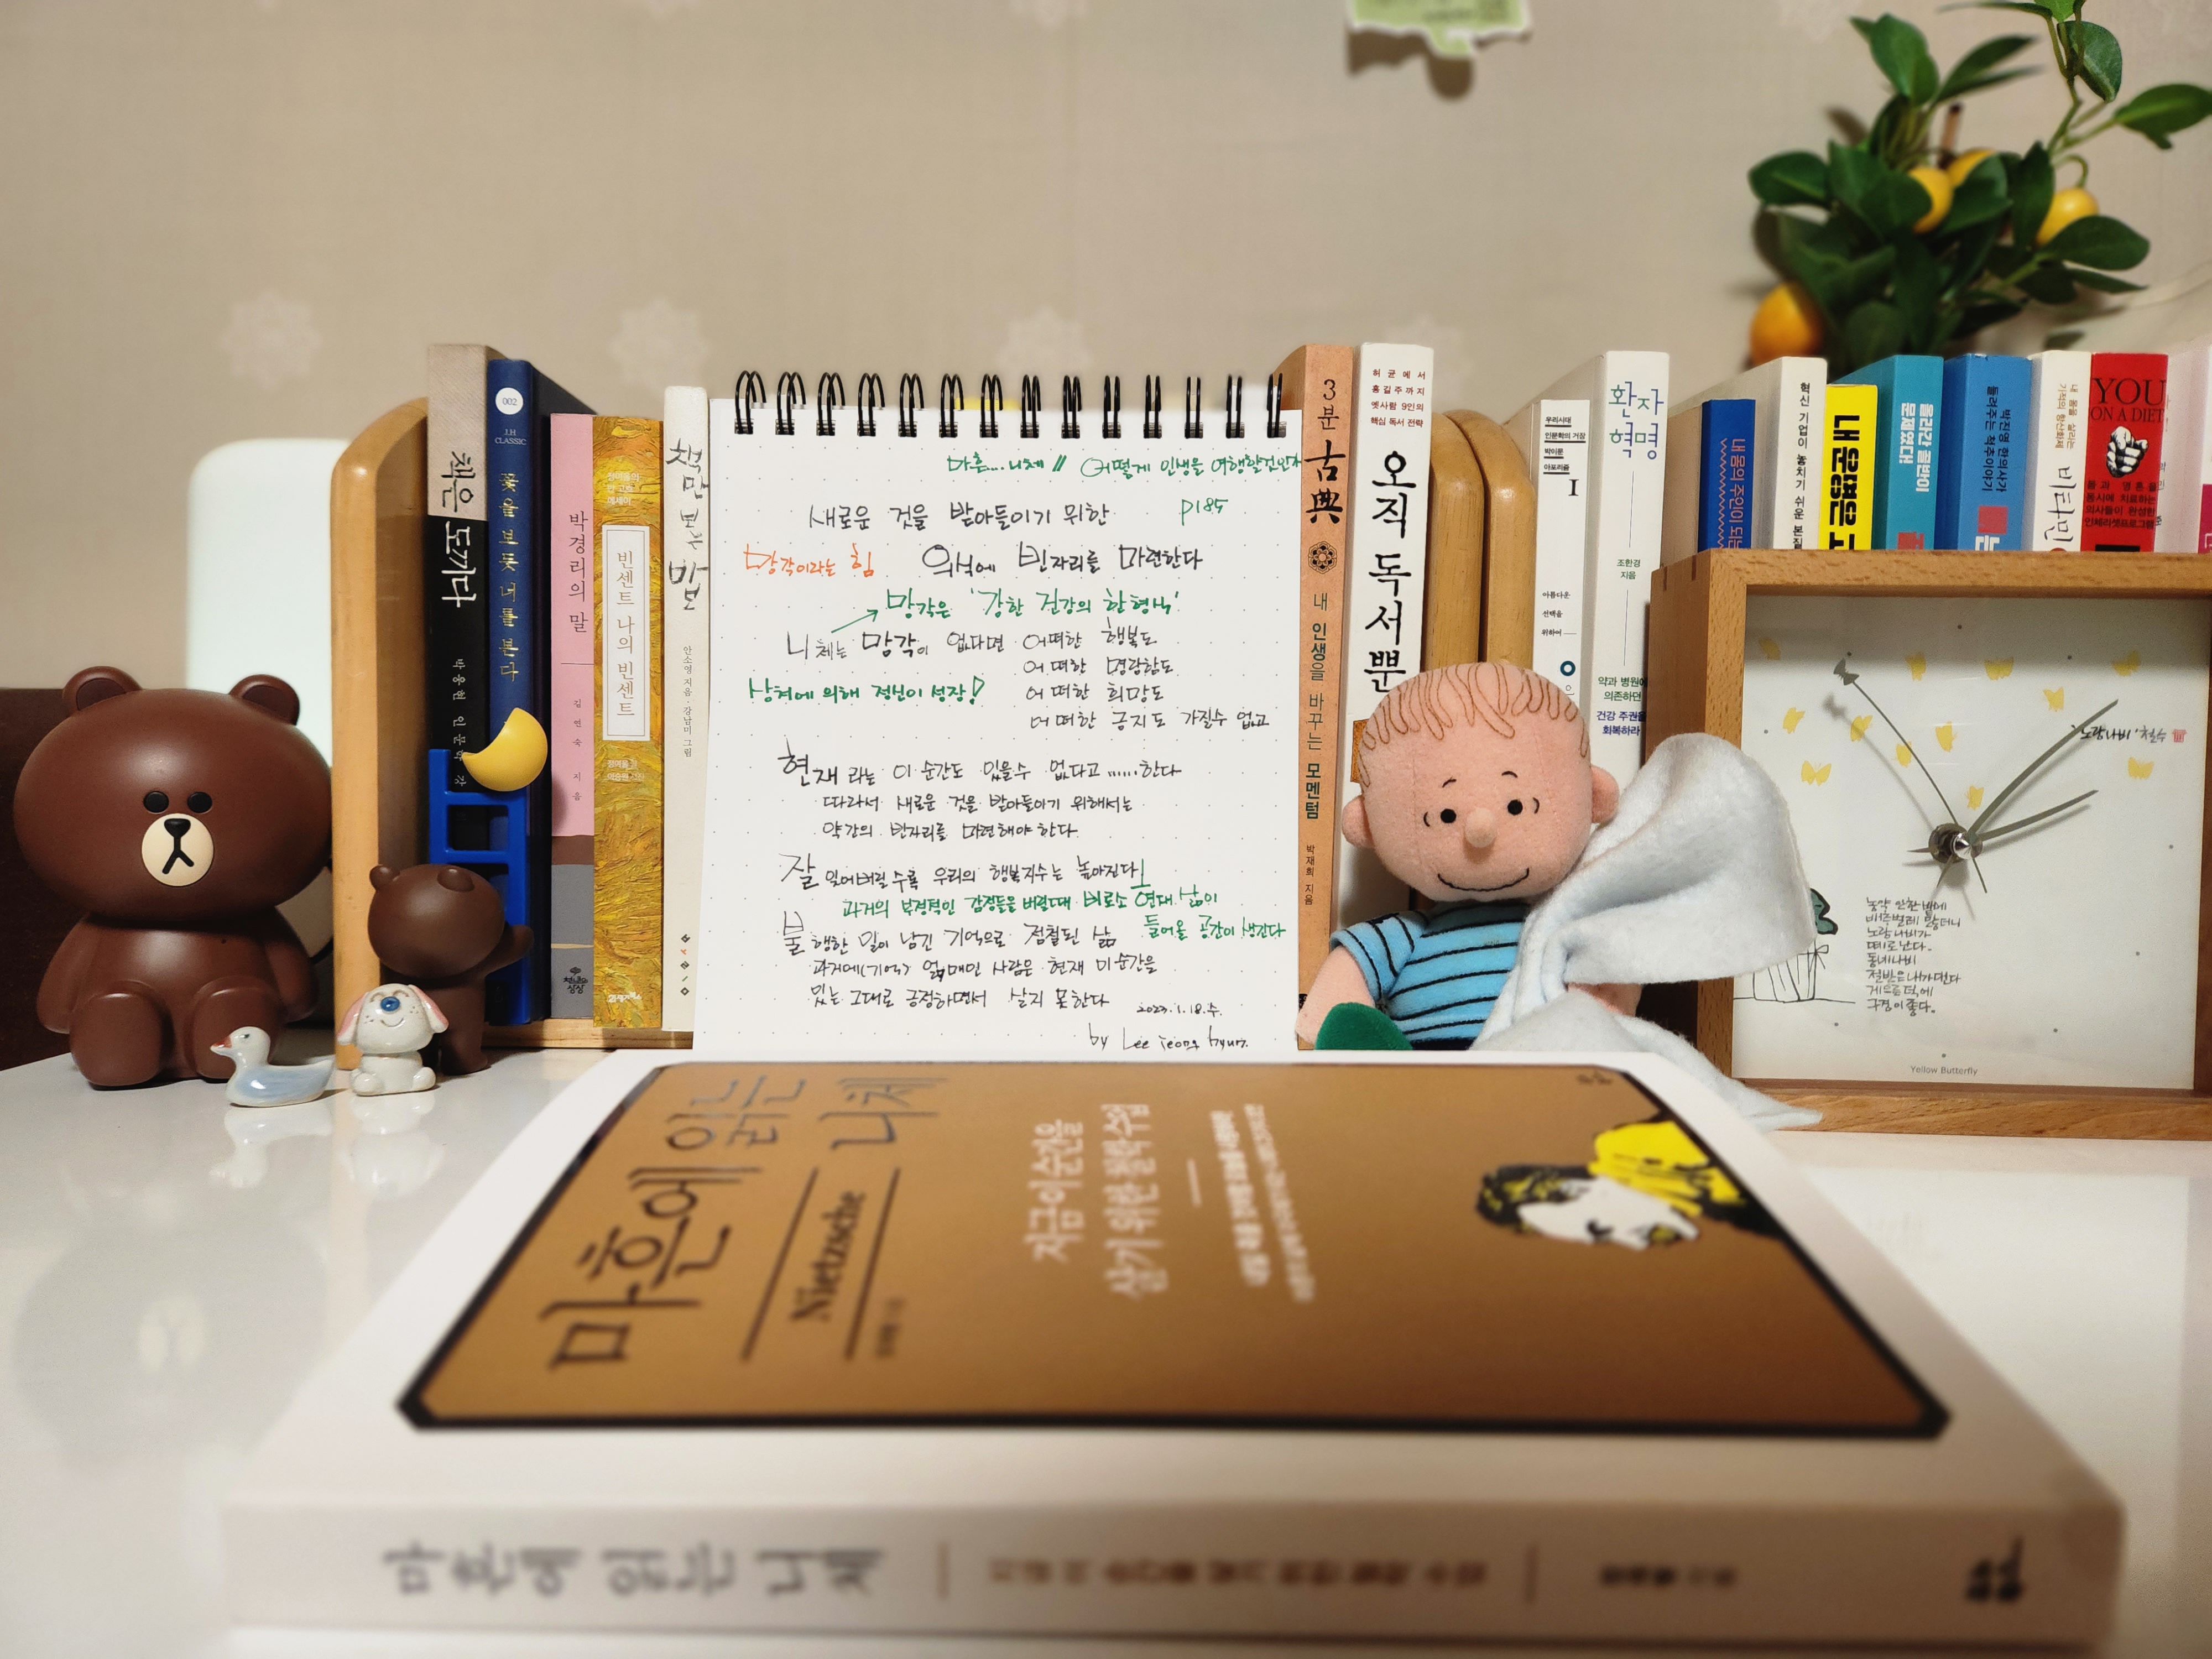 책은 도끼다
박웅현 인문학 강
002
J.H
CLASSIC
꽃을 보듯 너를 본다
박경리의 말
김연숙 지음
빈센트 나의 빈센트
책만 보는 바보
안소영 지음·강남미 그림
마흔...니체 // 어떻게 인생을 여행할것인가
새로운 것을 받아들이기 위한 p185
망각이라는 힘 의식에 빈자리를 마련한다
망각은 '강한 건강의 한 형식'
니체는 망각이 없다면 어떠한 행복도
어떠한 명랑함도
상처에 의해 정신이 성장! 어떠한 희망도
어떠한 긍지도 가질수 없고
현재 라는 이 순간도 있을수 없다고 ...... 한다
따라서 새로운 것을 받아들이기 위해서는
약간의 빈자리를 마련해야 한다
잘 잊어버릴수록 우리의 행복지수는 높아진다!
과거의 부정적인 감정들을 버릴때 비로소 현재 삶이
들어올 공간이 생긴다
불행한 일이 남긴 기억으로 점철된 삶
과거에(기억) 얽매인 사람은 현재 이순간을
있는 그대로 긍정하면서 살지 못한다
2023.1.18.수.
by Lee jeong hyun.
3분 古典
내 인생을 바꾸는 모멘텀
박재희 지음
허균에서
홍길주까지
옛사람 9인의
핵심 독서 전략
오직 독서뿐
우리시대
인문학의 거장
박이문
아포리즘
I
아름다운
선택을
위하여
환자
혁명
조한경
지음
약과 병원에
의존하던
건강 주권을
회복하라
내 몸의 주인이 되는
혁신 기업이 놓치기 쉬운 본질
내 운명은 고
올라간 골반이
문제였다!
박진영 한의사가
들려주는 척추이야기
비타민
YOU
ON A DIET
노랑나비, 철수
농약 안한 밭에
배추벌레 많더니
노랑나비가
떼로 난다.
동네나비
절반은 내가 먼다
구경이 좋다.
Yellow Butterfly
마흔에 읽는
니체
Nietzsche
지금 이 순간을
살기 위한 철학 수업
마흔에 읽는 니체
지금 이 순간을 살기 위한 철학 수업